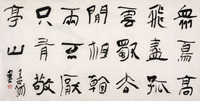 眾鳥高
飛盡孤
雲獨去
閒相看
兩不厭
只有敬
亭山